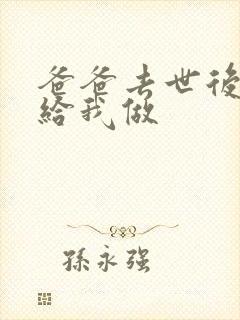 爸爸去世後
給我做
孫永强